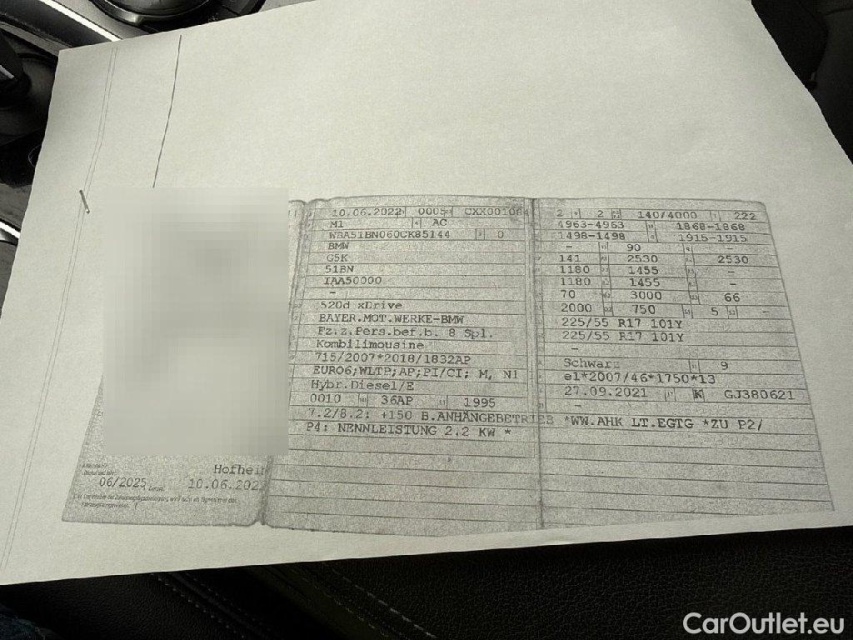 10.06.2022 0005 CXX00108
M1 AC
WBA51BN060CK85144 0
BMW
G5K
51BN
IAA50000
-
520d xDrive
BAYER.MOT.WERKE-BMW
Fz.z.Pers.bef.b. 8 Spl.
Kombilimousine
715/2007*2018/1832AP
EURO6;WLTP;AP;PI/CI; M, N1
Hybr.Diesel/E
0010 36AP 1995
7.2/8.2: +150 B.ANHÄNGEBETRIEB *WW.AHK LT.EGTG *ZU P2/
P4: NENNLEISTUNG 2,2 KW *
2 2 140/4000 222
4963-4963 1868-1868
1498-1498 1915-1915
- 90 -
141 2530 2530
1180 1455 -
1180 1455 -
70 3000 66
2000 750 5 -
225/55 R17 101Y
225/55 R17 101Y
-
Schwarz 9
e1*2007/46*1750*13
27.09.2021 K GJ380621
Hofhei
06/2025 10.06.202
CarOutlet.eu